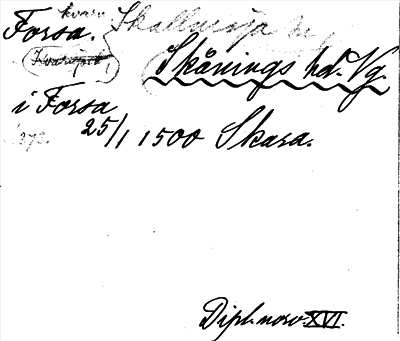 kvarn
Forsa. Skallmeja sn,
Skånings hd. Vg.
i Forsa
25/1 1500 Skara.
373.
Dipl. norv. XVI.